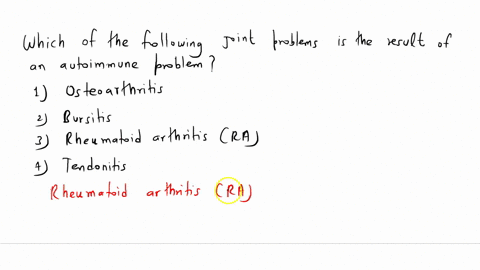 Which of the following joint problems is the result of
an autoimmune problem?
1) Osteoarthritis
2) Bursitis
3) Rheumatoid arthritis (RA)
4) Tendonitis
Rheumatoid arthritis (RA)